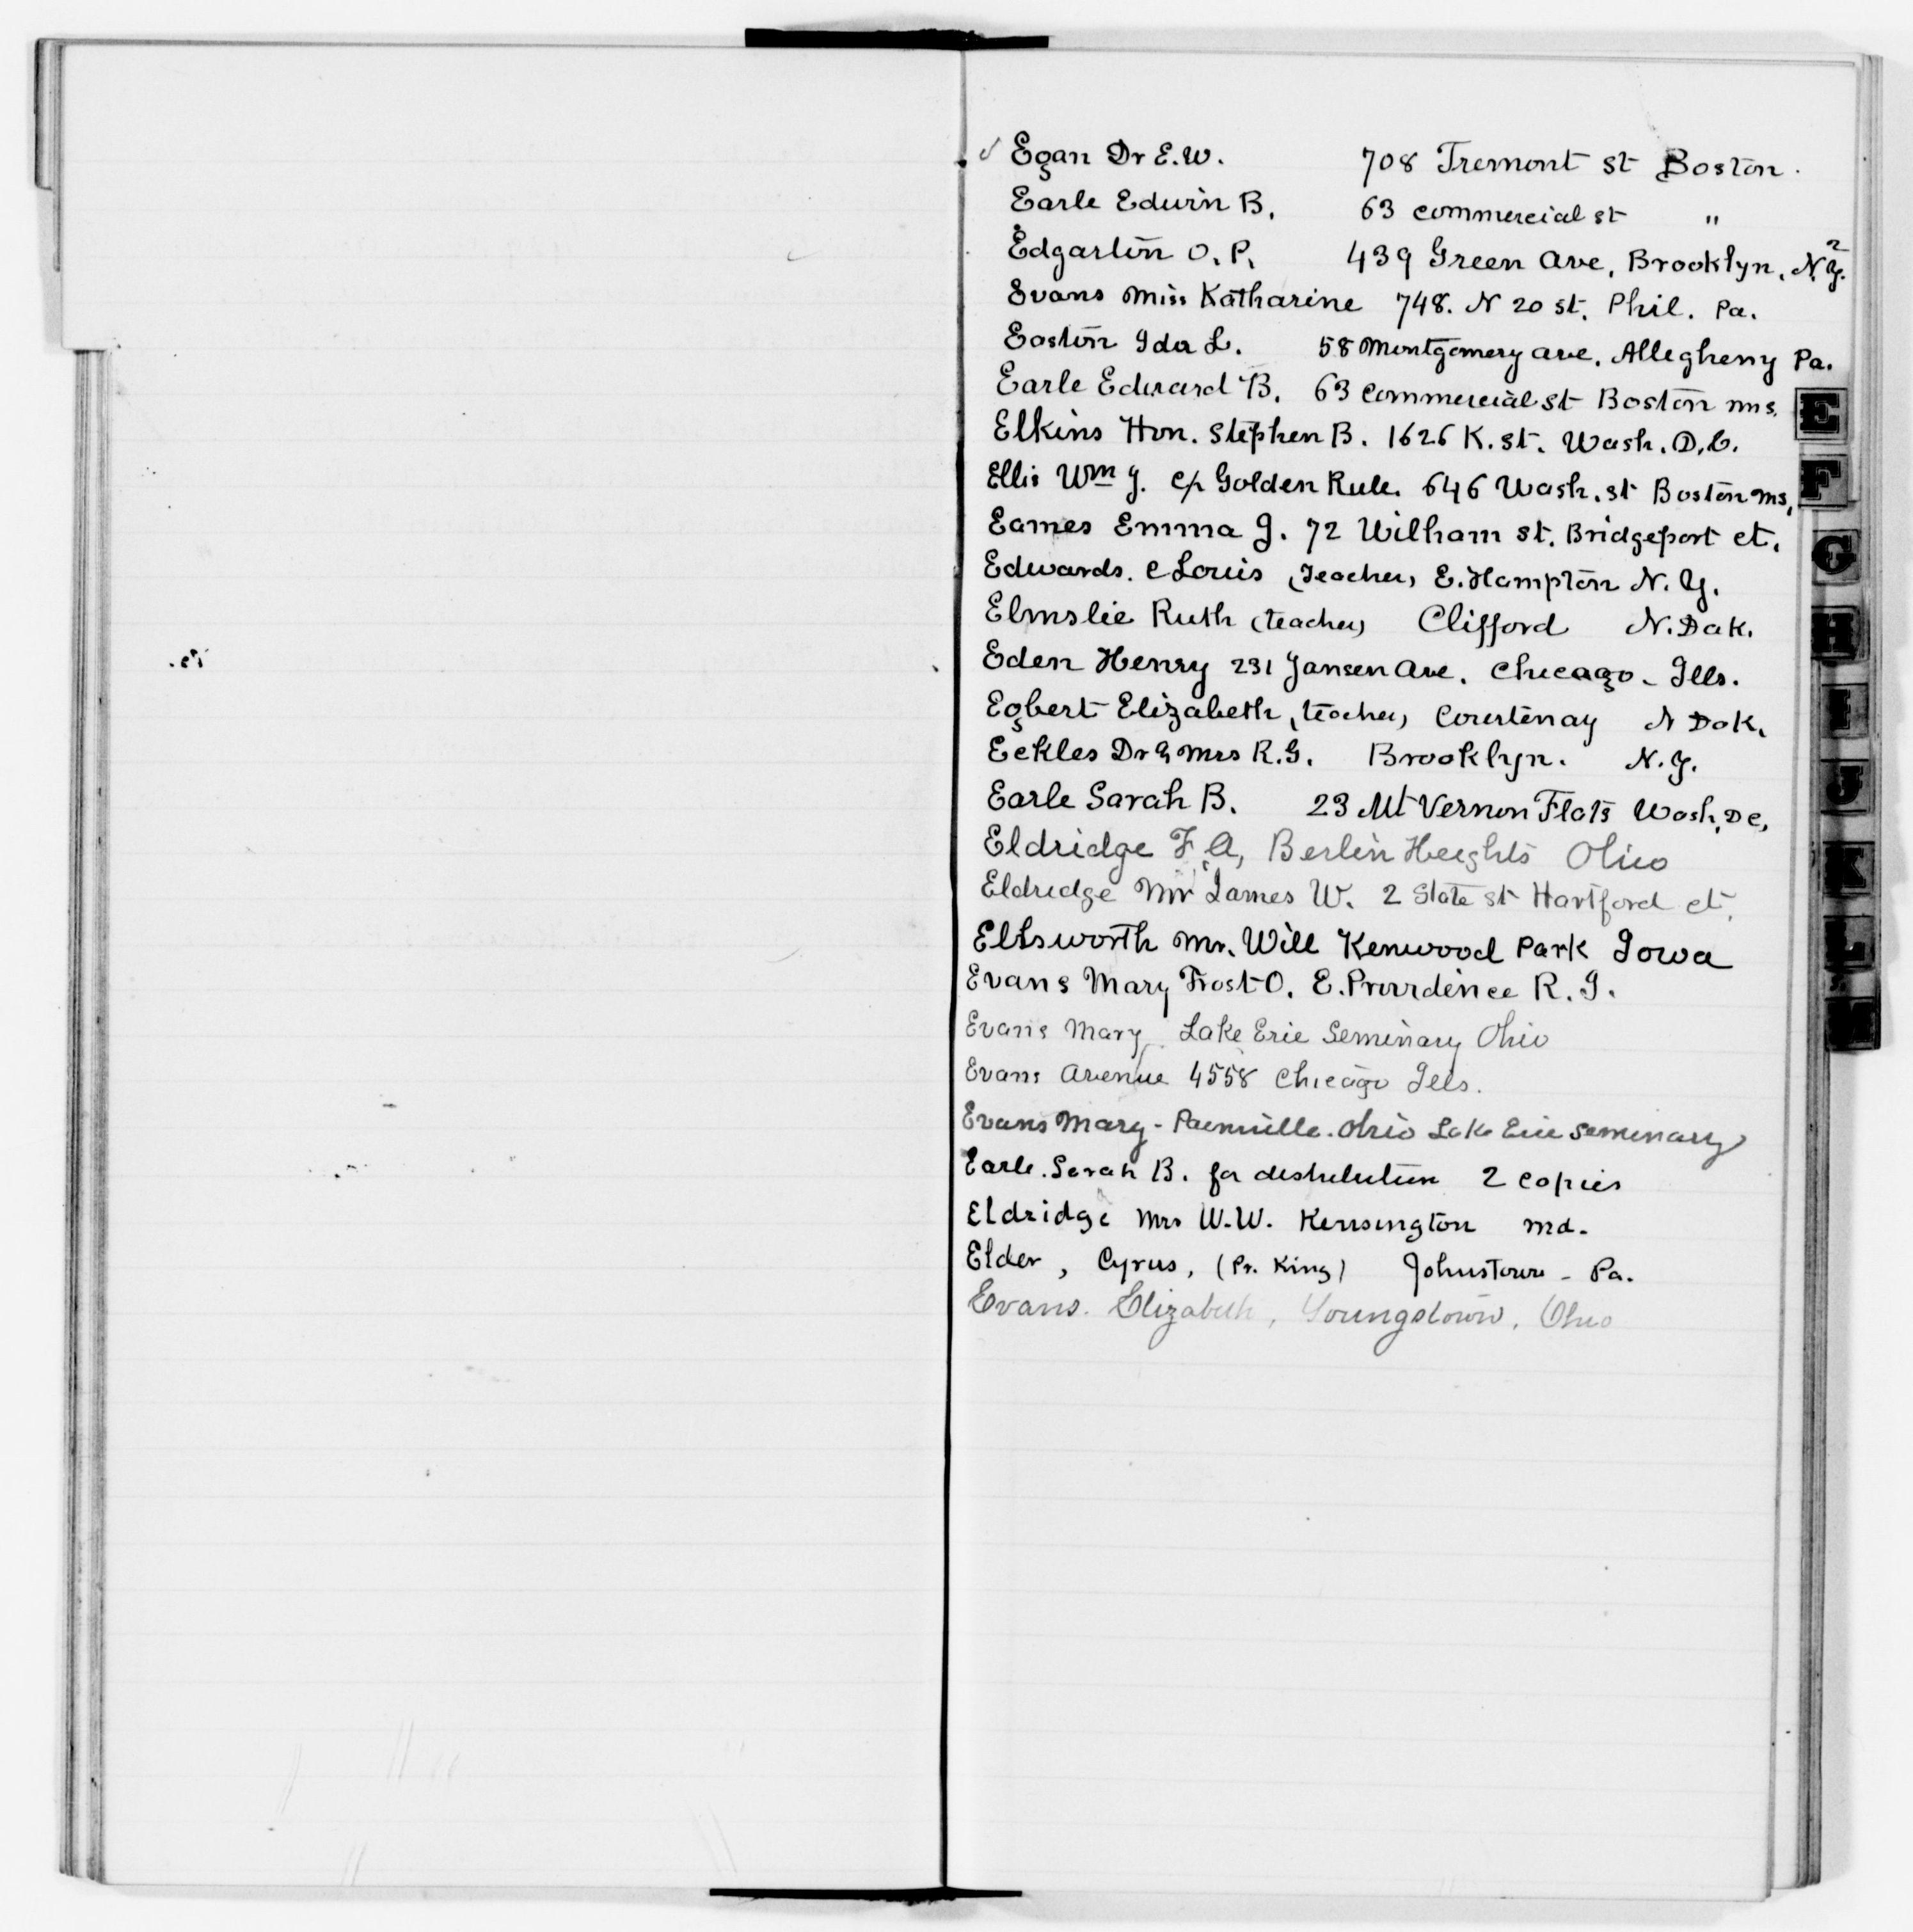 ✓ Egan Dr E.W. 708 Tremont st Boston.
Earle Edwin B. 63 commercial st "
Edgarton O. P. 439 Green Ave, Brooklyn, N.Y. 2
Evans Miss Katharine 748. N 20 st. Phil. Pa.
Easton Ida L. 58 Montgomery ave. Allegheny Pa.
Earle Edward B. 63 commercial st Boston ms.
Elkins Hon. Stephen B. 1626 K. st. Wash. D.C.
Ellis Wm J. c/o Golden Rule. 646 Wash. st Boston ms.
Eames Emma J. 72 William st. Bridgeport ct.
Edwards. C Louis (teacher) E. Hampton N.Y.
Elmslie Ruth (teacher) Clifford N. Dak.
Eden Henry 231 Jansen Ave. Chicago - Ills.
Egbert Elizabeth (teacher) Courtenay N Dak.
Eckles Dr & Mrs R.G. Brooklyn. N.Y.
Earle Sarah B. 23 Mt Vernon Flats Wash. DC,
Eldridge F. A, Berlin Heights Ohio
Eldredge Mr James W. 2 State st Hartford ct.
Ellsworth Mr. Will Kenwood Park Iowa
Evans Mary Frost O. E. Providence R. I.
Evans Mary, Lake Erie Seminary Ohio
Evans Avenue 4558 Chicago Ills.
Evans Mary - Painsville. Ohio Lake Erie Seminary
Earle. Sarah B. for distribution 2 copies
Eldridge Mrs W.W. Kensington Md.
Elder, Cyrus, (Pr. King) Johnstown - Pa.
Evans. Elizabeth, Youngstown, Ohio
E
F
G
H
I
J
K
L
M